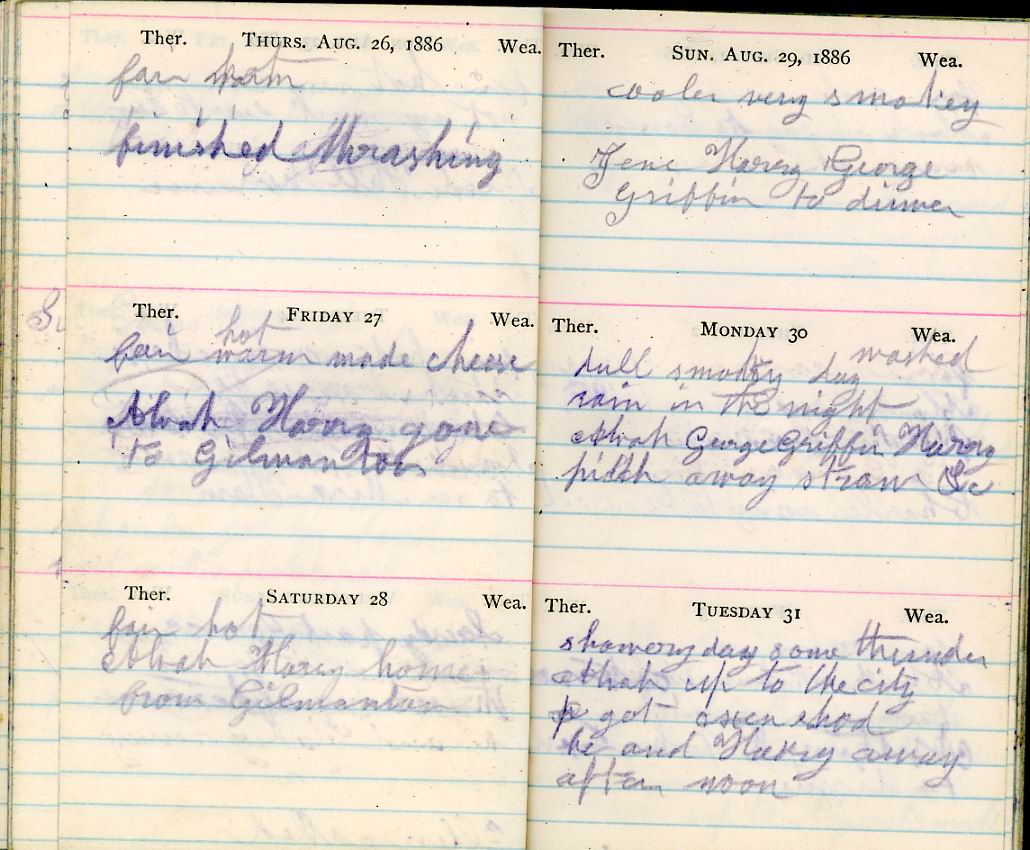 Ther. THURS. AUG. 26, 1886 Wea.
fair warm
finished thrashing
Ther. FRIDAY 27 Wea.
hot
fair warm made cheese
Alvah Harry gone
to Gilmanton
Ther. SATURDAY 28 Wea.
fair hot
Alvah Harry home
from Gilmanton
Ther. SUN. AUG. 29, 1886 Wea.
cooler very smokey
Jene Harry George
Griffin to dinner
Ther. MONDAY 30 Wea.
washed
dull smoky day
rain in the night
Alvah George Griffin Harry
pitch away straw &c
Ther. TUESDAY 31 Wea.
showery day some thunder
Alvah up to the city
got oxen shod
he and Harry away
after noon